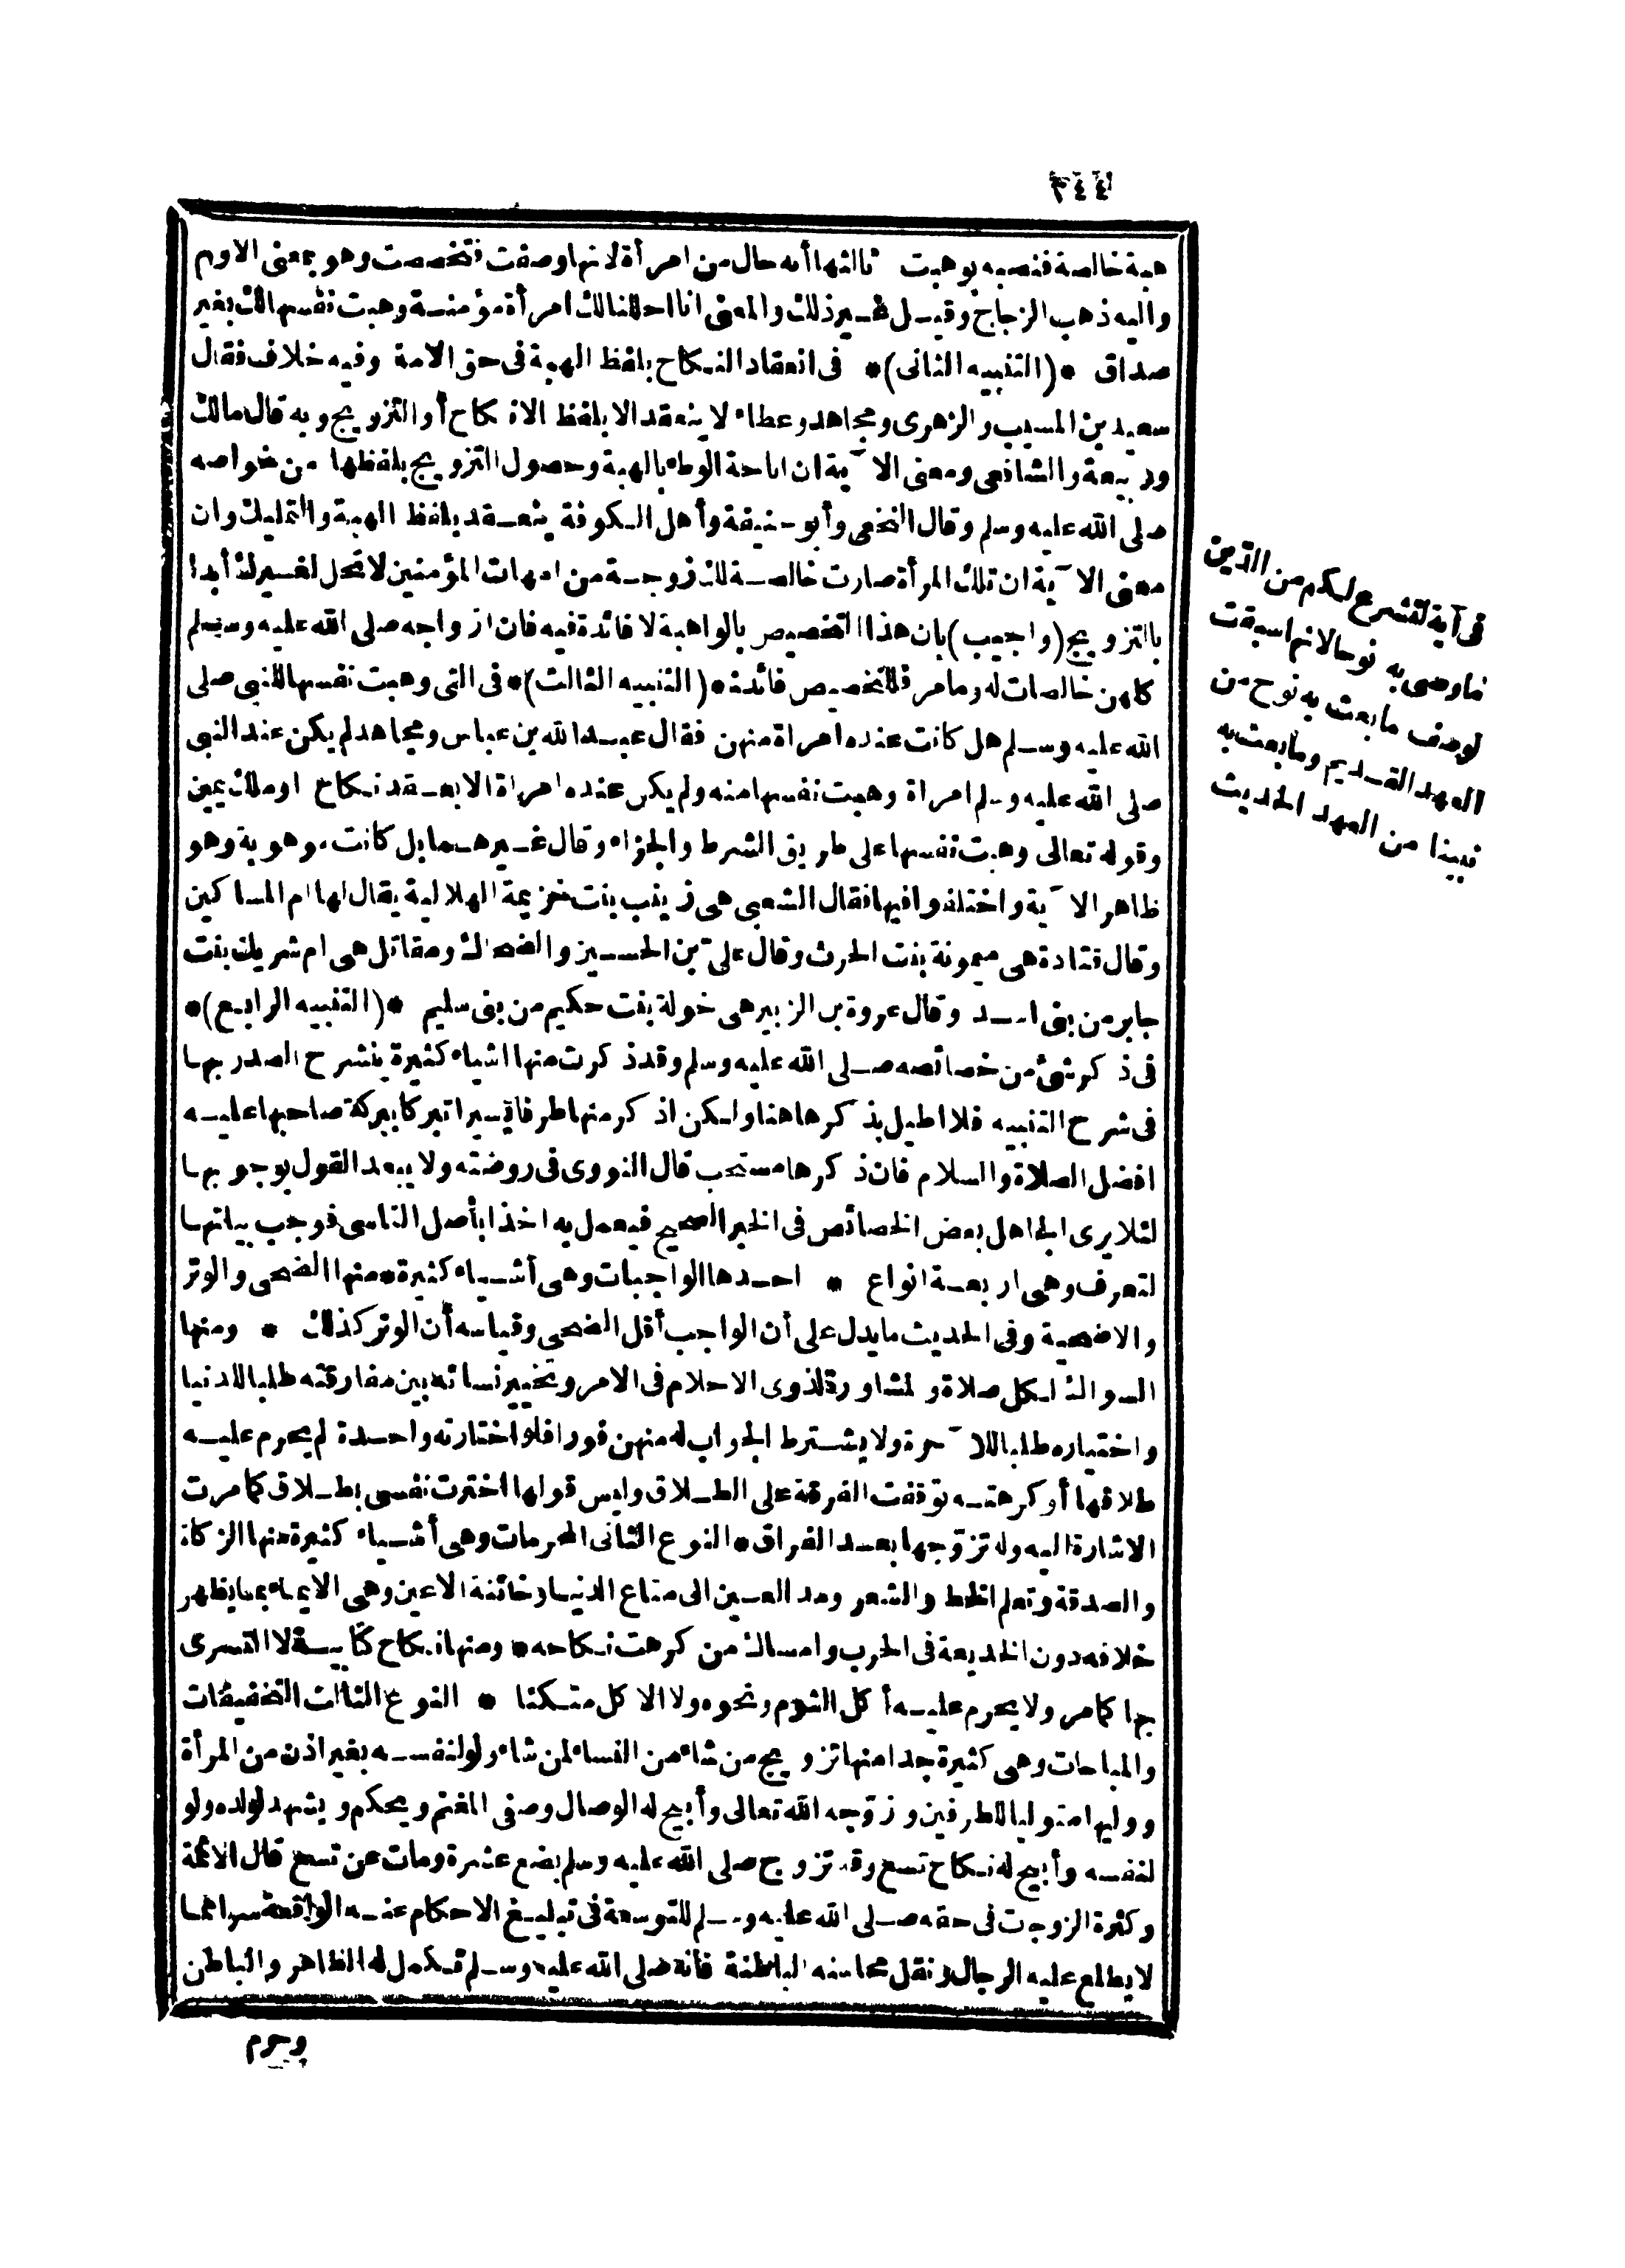 ٣٤٤
هبة خالصة فنصبه بوهبت ثالثها أنه حال من امرأة لانها وصفت فتخصصت وهو بمعنى الاول
واليه ذهب الزجاج وقيل غير ذلك والمعنى انا احللنا لك امرأة مؤمنة وهبت نفسها لك بغير
صداق * (التنبيه الثانى) * فى انعقاد النكاح بلفظ الهبة فى حق الامة وفيه خلاف فقال
سعيد بن المسيب والزهرى ومجاهد وعطاء لا ينعقد الا بلفظ الانكاح أو التزويج وبه قال مالك
وربيعة والشافعى ومعنى الآية ان اباحة الوطء بالهبة وحصول التزويج بلفظها من خواصه
صلى الله عليه وسلم وقال النخعى وأبو حنيفة وأهل الكوفة ينعقد بلفظ الهبة والتمليك وان
معنى الآية ان تلك المرأة صارت خالصة لك زوجة من امهات المؤمنين لا تحل لغيرك أبدا
بالتزويج (واجيب) بان هذا التخصيص بالواهبة لا فائدة فيه فان ازواجه صلى الله عليه وسلم
كلهن خالصات له وما مر فللتخصيص فائدة * (التنبيه الثالث) * فى التى وهبت نفسها للنبى صلى
الله عليه وسلم هل كانت عنده امراة منهن فقال عبد الله بن عباس ومجاهد لم يكن عند النبى
صلى الله عليه وسلم امراة وهبت نفسها منه ولم يكن عنده امراة الا بعقد نكاح او ملك يمين
وقوله تعالى وهبت نفسها على طريق الشرط والجزاء وقال غيرهما بل كانت موهوبة وهو
ظاهر الآية واختلفوا فيها فقال الشعبى هى زينب بنت خزيمة الهلالية يقال لها ام المساكين
وقال قتادة هى ميمونة بنت الحرث وقال على بن الحسين والضحاك ومقاتل هى ام شريك بنت
جابر من بنى اسد وقال عروة بن الزبير هى خولة بنت حكيم من بنى سليم * (التنبيه الرابع) *
فى ذكر شئ من خصائصه صلى الله عليه وسلم وقد ذكرت منها اشياء كثيرة ينشرح الصدر بها
فى شرح التنبيه فلا اطيل بذكرها هنا ولكن اذكر منها طرفا يسيرا تبركا ببركة صاحبها عليه
افضل الصلاة والسلام فان ذكرها مستحب قال النووى فى روضته ولا يبعد القول بوجوبها
لئلا يرى الجاهل بعض الخصائص فى الخبر الصحيح فيعمل به اخذا بأصل التاسى فوجب بيانها
لتعرف وهى اربعة انواع * احدها الواجبات وهى أشياء كثيرة * منها الضحى والوتر
والاضحية وفى الحديث ما يدل على أن الواجب أقل الضحى وقياسه أن الوتر كذلك * ومنها
السواك لكل صلاة والمشاورة لذوى الاحلام فى الامر وتخيير نسائه بين مفارقته طلبا للدنيا
واختياره طلبا للآخرة ولا يشترط الجواب له منهن فورا فلو اختارته واحدة لم يحرم عليه
طلاقها أو كرهته توقفت الفرقة على الطلاق وليس قولها اخترت نفسى بطلاق كما مرت
الاشارة اليه وله تزوجها بعد الفراق * النوع الثانى المحرمات وهى أشياء كثيرة منها الزكاة
والصدقة وتعلم الخط والشعر ومد العين الى متاع الدنيا وخائنة الاعين وهى الايماء بما يظهر
خلافه دون الخديعة فى الحرب وامساك من كرهت نكاحه * ومنها نكاح كتابية لا التسرى
بها كما مر ولا يحرم عليه أكل الثوم ونحوه ولا الاكل متكئا * النوع الثالث التخفيفات
والمباحات وهى كثيرة جدا منها تزويج من شاء من النساء لمن شاء ولو لنفسه بغير اذن من المرأة
ووليها متوليا للطرفين وزوجه الله تعالى وأبيح له الوصال وصفى المغنم ويحكم ويشهد لولده ولو
لنفسه وأبيح له نكاح تسع وقد تزوج صلى الله عليه وسلم بضع عشرة ومات عن تسع قال الائمة
وكثرة الزوجات فى حقه صلى الله عليه وسلم للتوسعة فى تبليغ الاحكام عنه الواقعة سرا مما
لا يطلع عليه الرجال ونقل محاسنه الباطنة فانه صلى الله عليه وسلم تكمل له الظاهر والباطن
وحرم
فى آية شرع لكم من الدين
ما وصى به نوحا لانها سيقت
لوصف ما بعث به نوح من
العهد القديم وما بعث به
نبينا من العهد الحديث